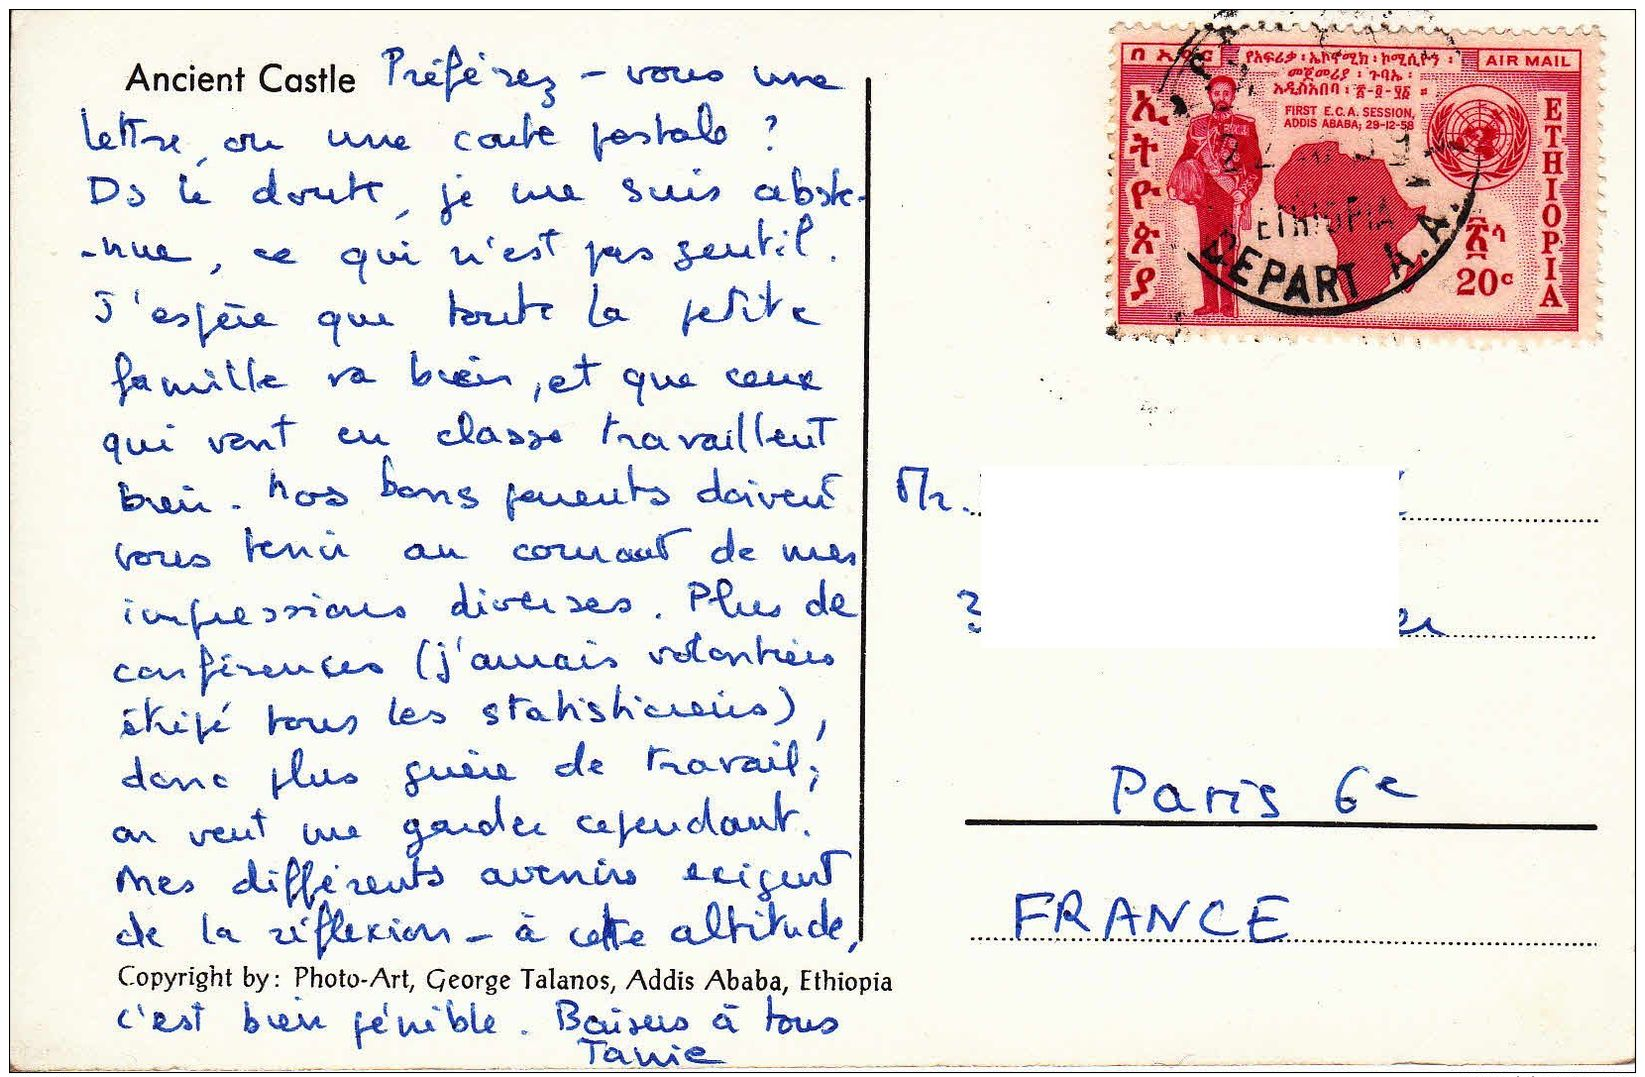 Ancient Castle Préférez-vous une
lettre, ou une carte postale ?
Ds le doute, je me suis abste-
-nue, ce qui n'est pas gentil.
J'espère que toute la petite
famille va bien, et que ceux
qui vont en classe travaillent
bien. Nos bons parents doivent
vous tenir au courant de mes
impressions diverses. Plus de
conférences (j'aurais volontiers
étripé tous les statisticiens),
donc plus guère de travail;
on veut me garder cependant.
Mes différents avenirs exigent
de la réflexion - à cette altitude,
Copyright by: Photo-Art, George Talanos, Addis Ababa, Ethiopia
c'est bien pénible. Baisers à tous
Tanie
በአየር
የአፍሪቃ፡ኤኮኖሚክ፡ኮሚሲዮን፡
መጀመሪያ፡ጉባኤ፡
AIR MAIL
FIRST E.C.A. SESSION,
ADDIS ABABA; 29-12-58
ኢትዮጵያ
ETHIOPIA
20c
ETHIOPIA
DEPART A.A.
Mr.
3
er
Paris 6e
FRANCE